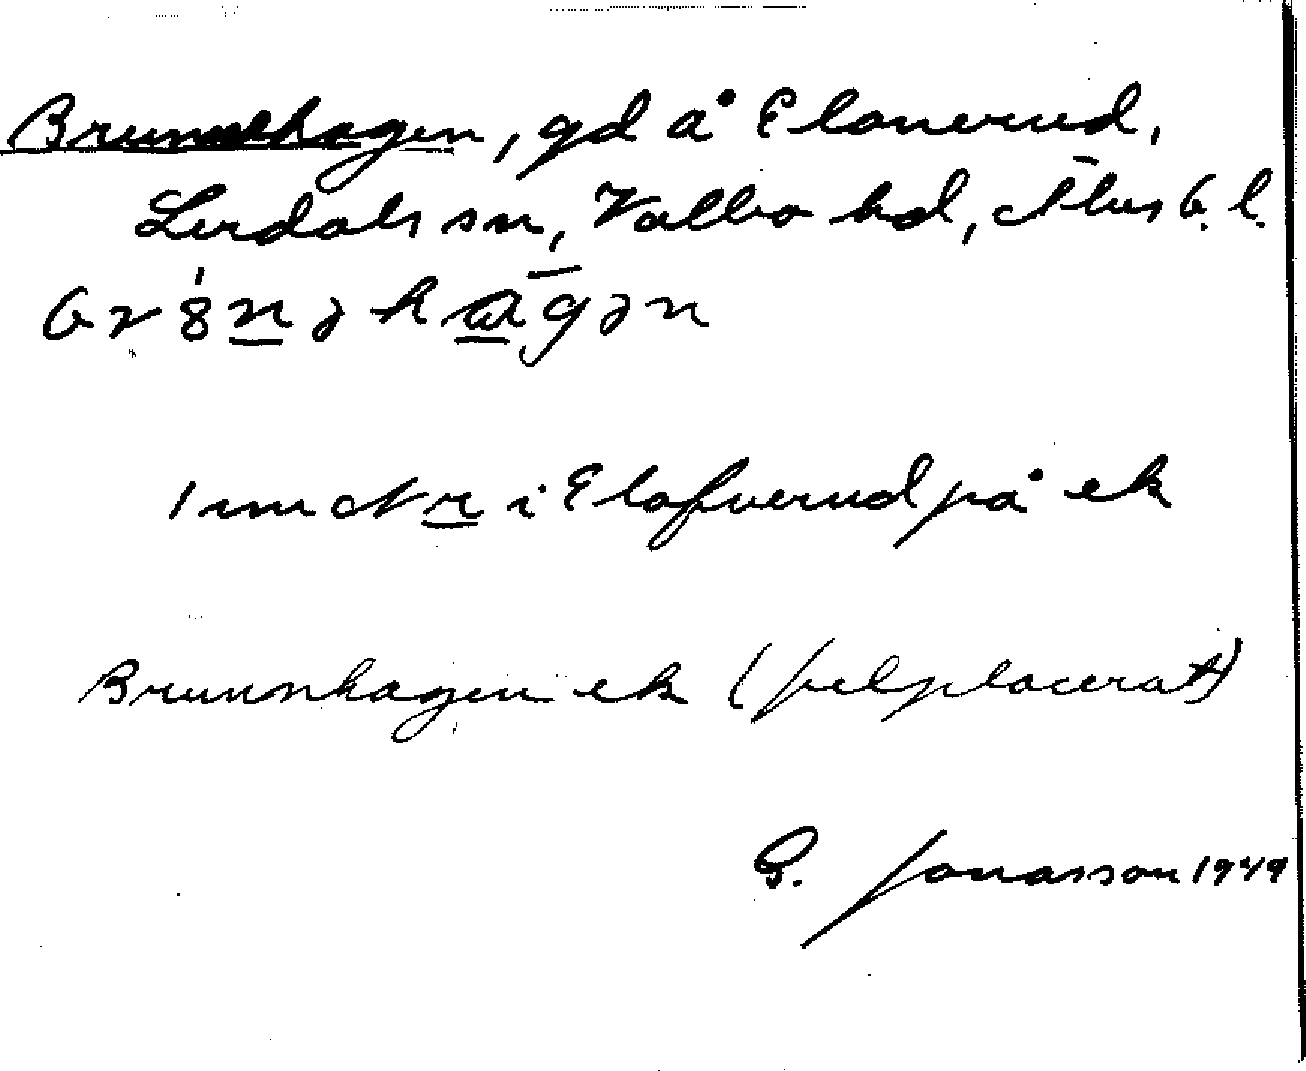 Brunnehagen, gd å Elonerud,
Lerdals sn, Valbo hd, Älvsb. l.
br8nəhagən
1 mu Nr i Elofverud på ek
Brunnhagen ek (felplacerat)
G. Jonasson 1949